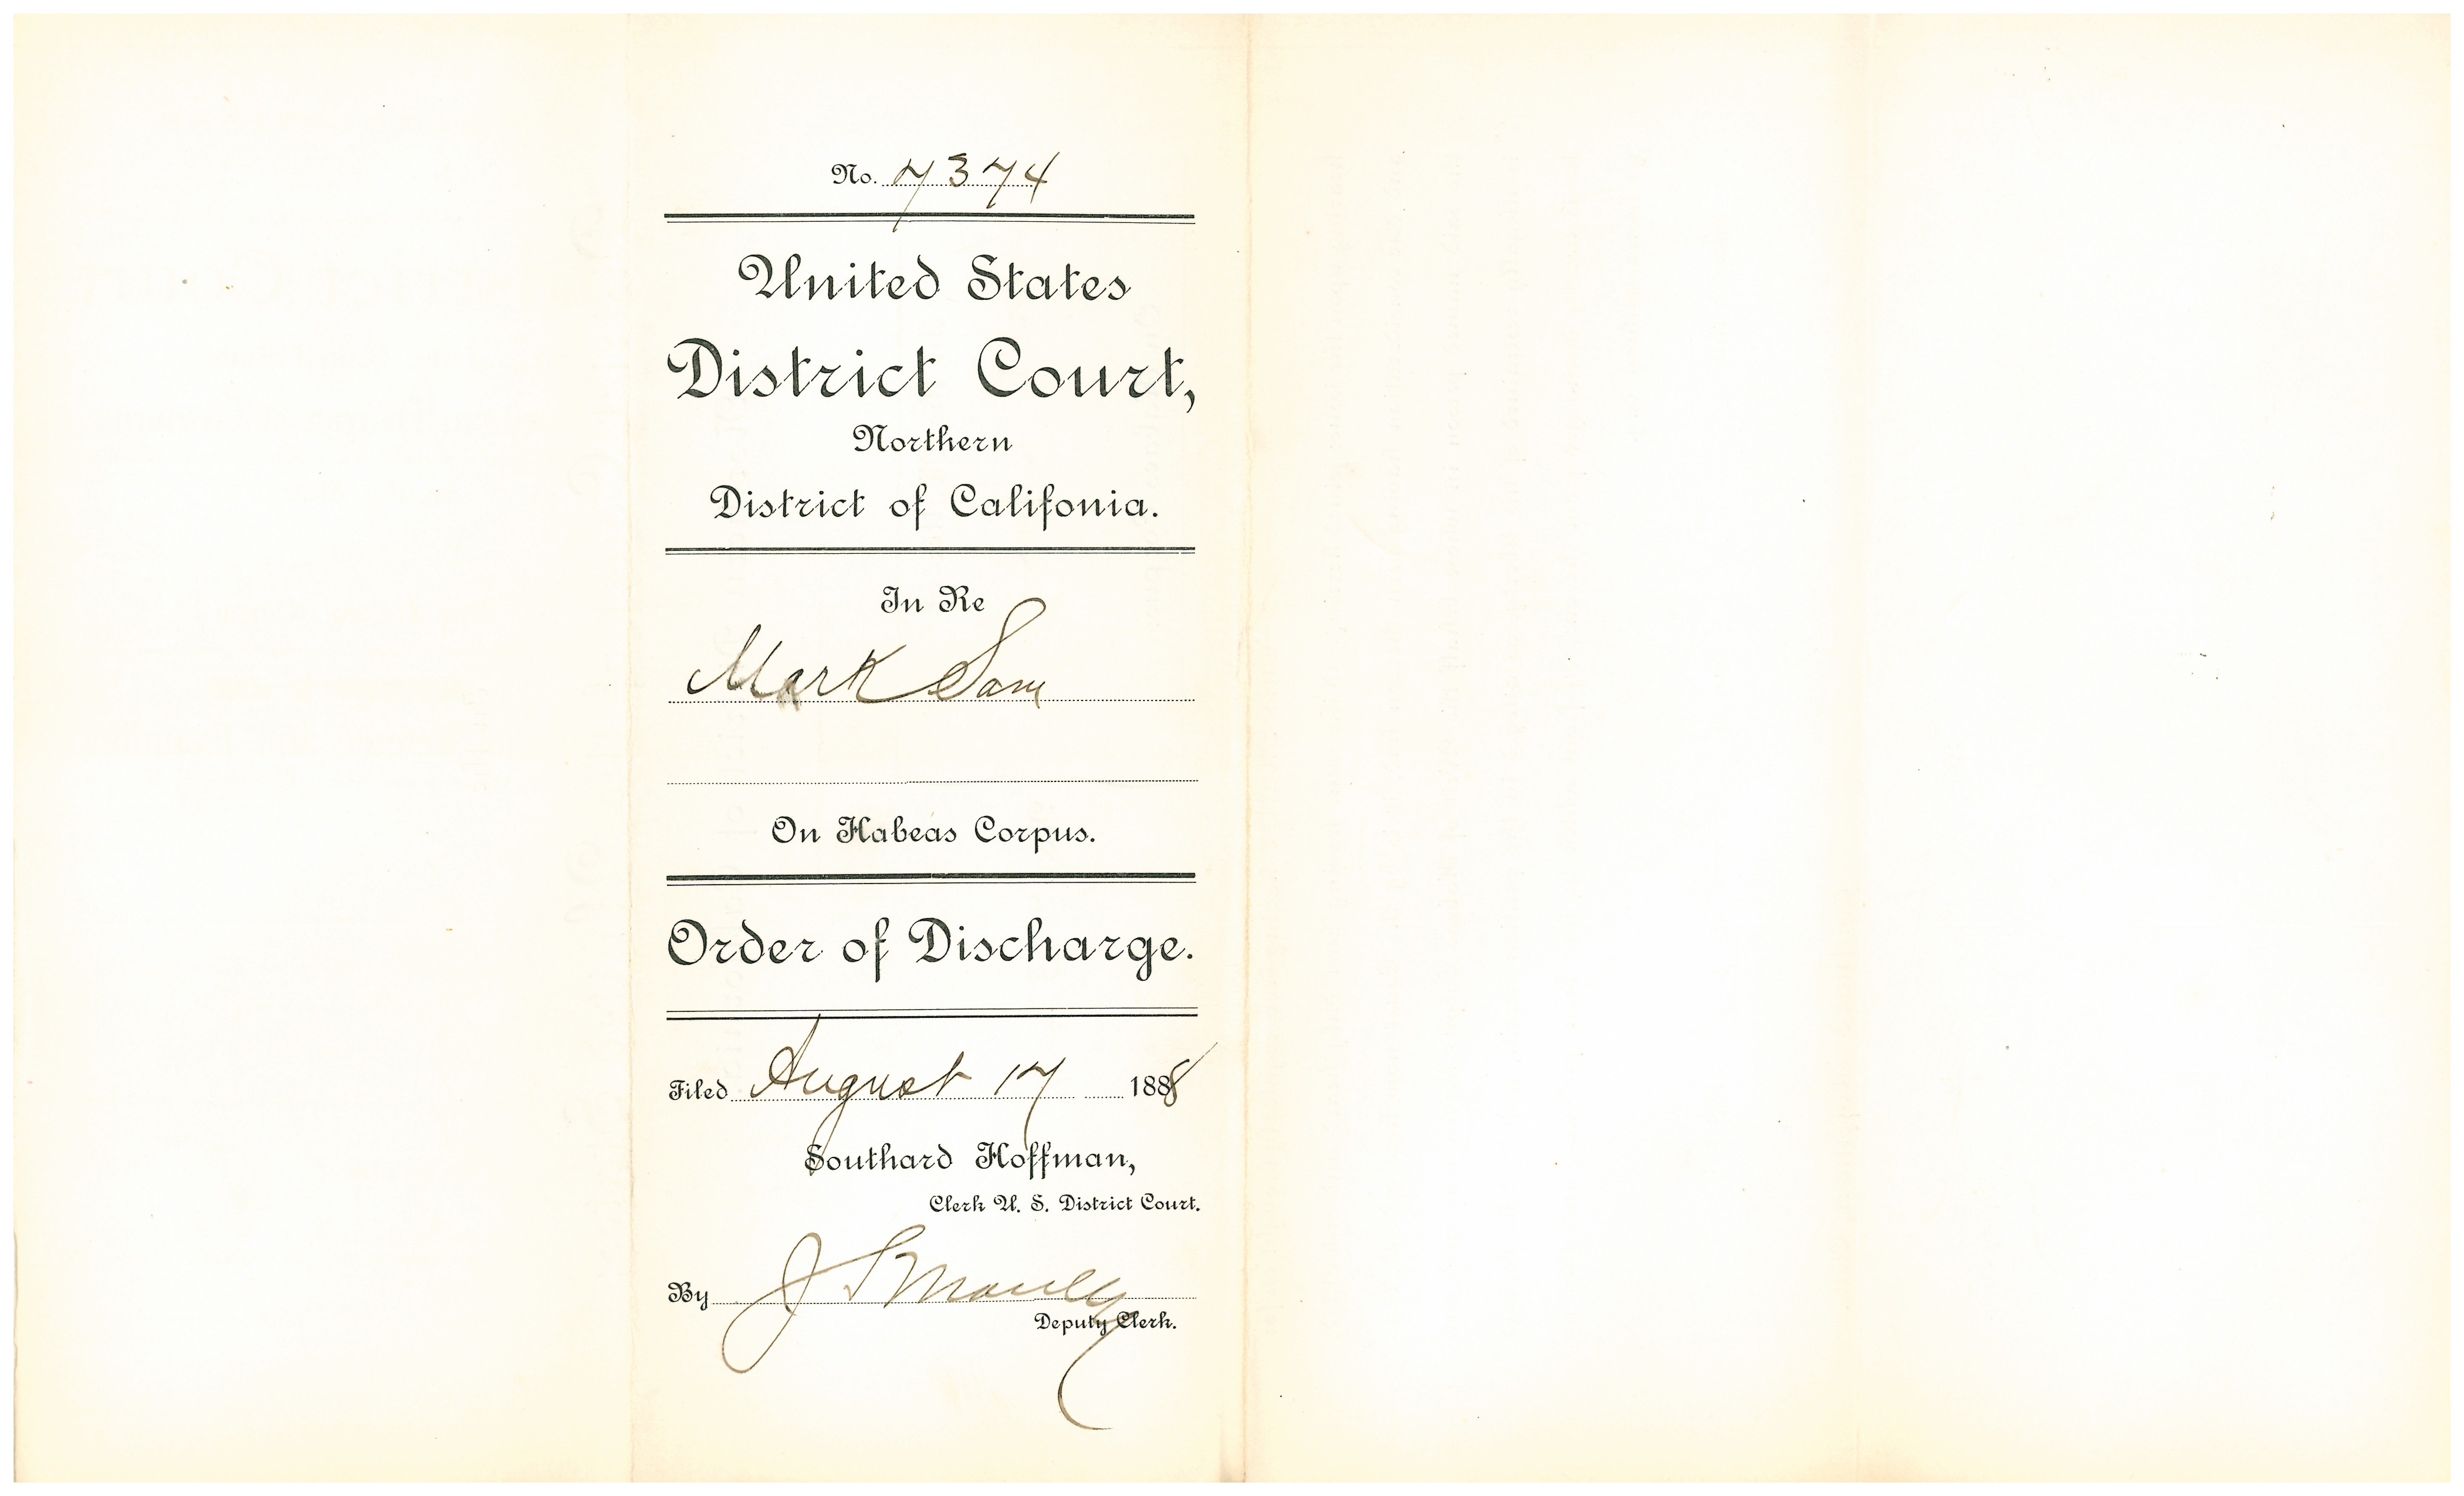 No. 7374
United States
District Court,
Northern
District of Califonia.
In Re
Mark Sam
On Habeas Corpus.
Order of Discharge.
Filed August 17 1888
Southard Hoffman,
Clerk U. S. District Court.
By J S Manley
Deputy Clerk.